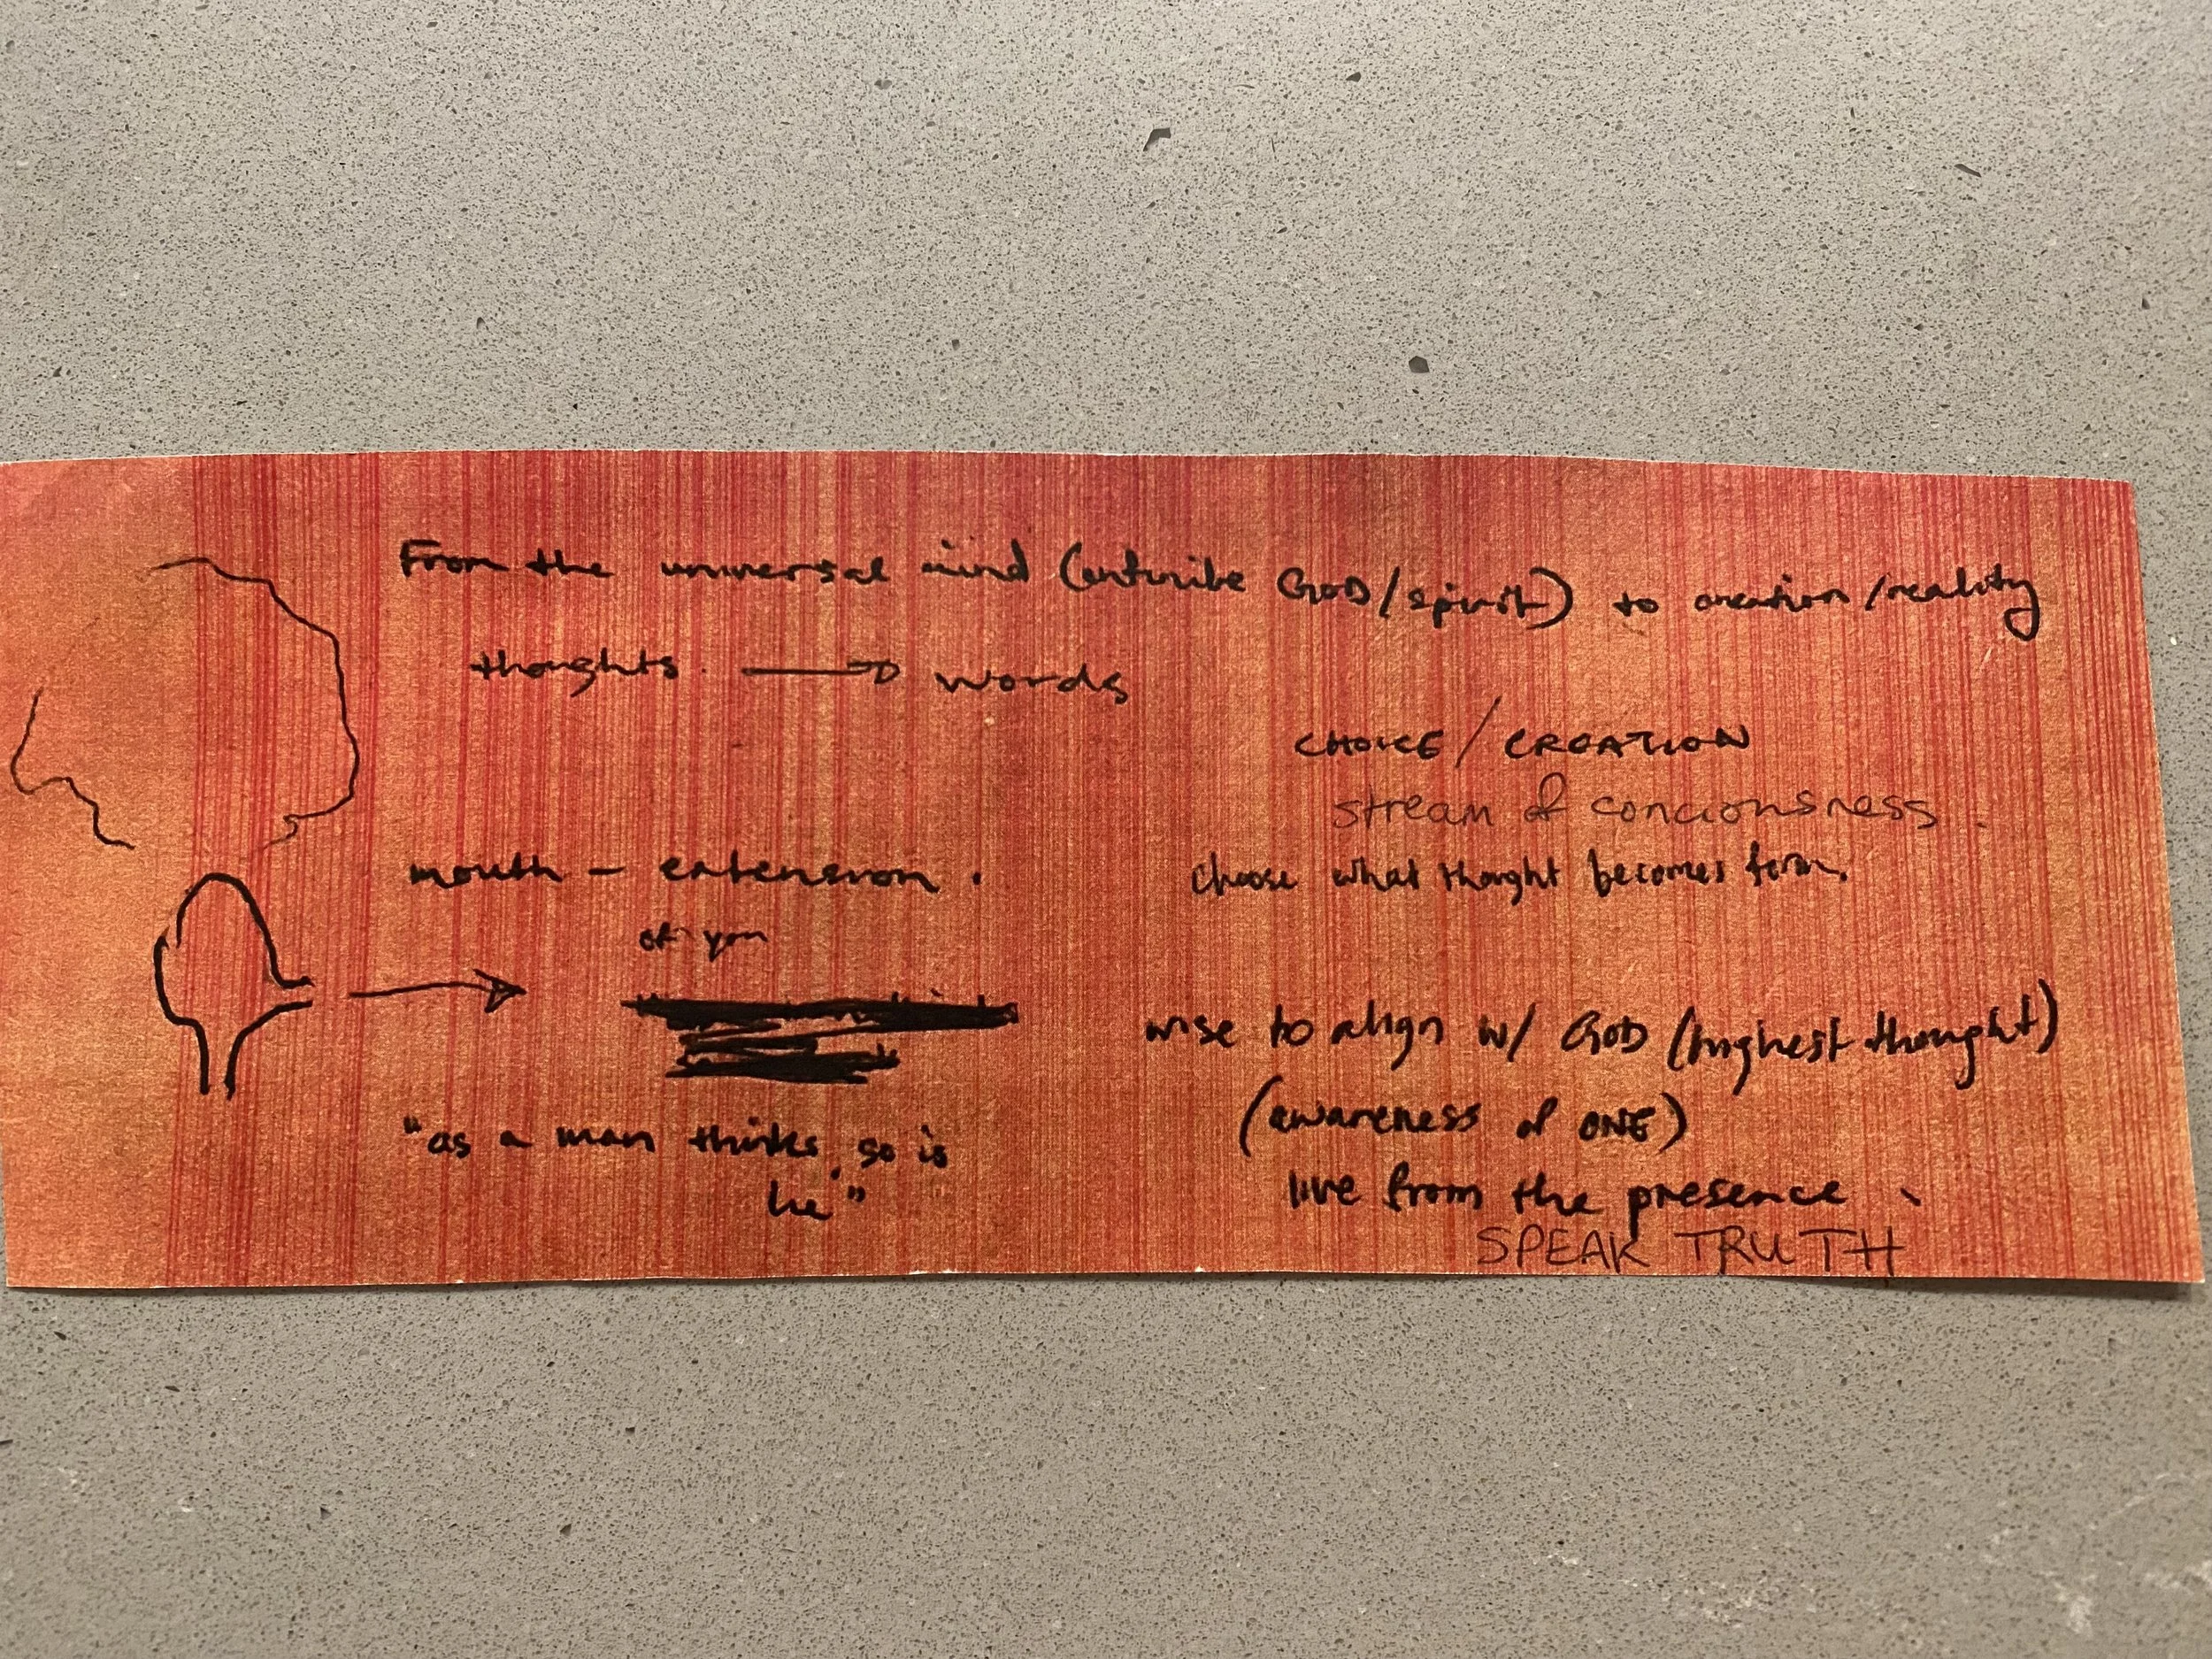 From the universal mind (antwibe GOD/spirit) to creation/reality
thoughts. → words
CHOICE / CREATION
stream of conciousness.
mouth – extension.
of you
choose what thought becomes form.
wise to align w/ GOD (highest thought)
(awareness of ONE)
"as a man thinks, so is
he"
live from the presence.
SPEAK TRUTH